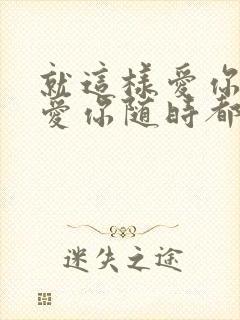 就這樣愛你
愛你隨時都
迷失之途